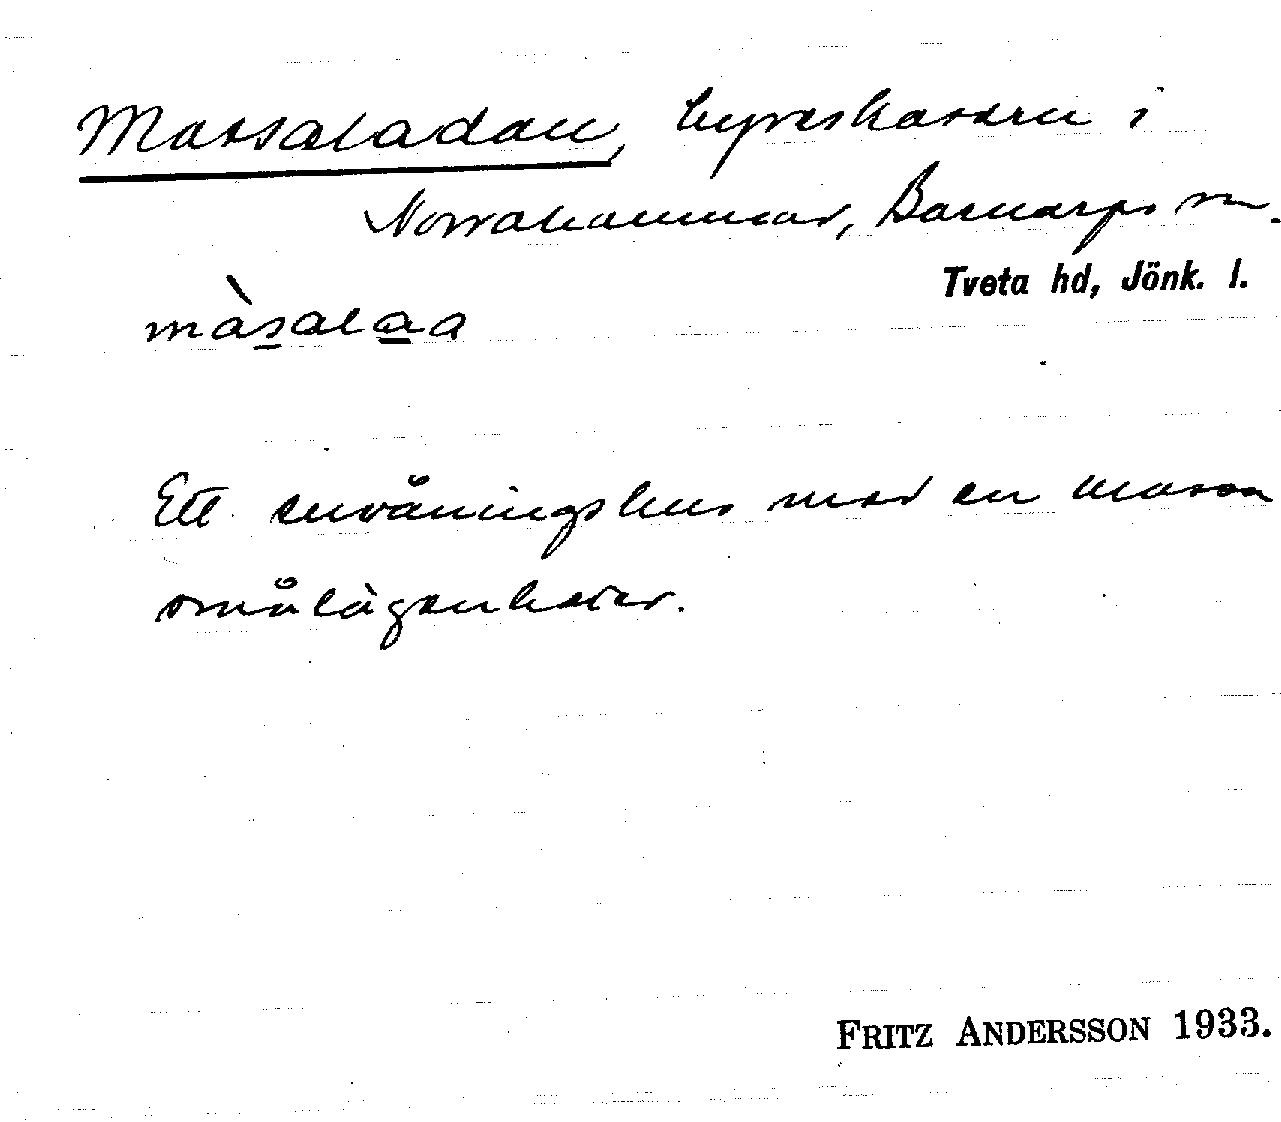 Massaladan, hyreskasern i
Norrahammar, Barnarps sn.
Tveta hd, Jönk. l.
màsalaa
Ett envåningshus med en massa
smålägenheter.
FRITZ ANDERSSON 1933.